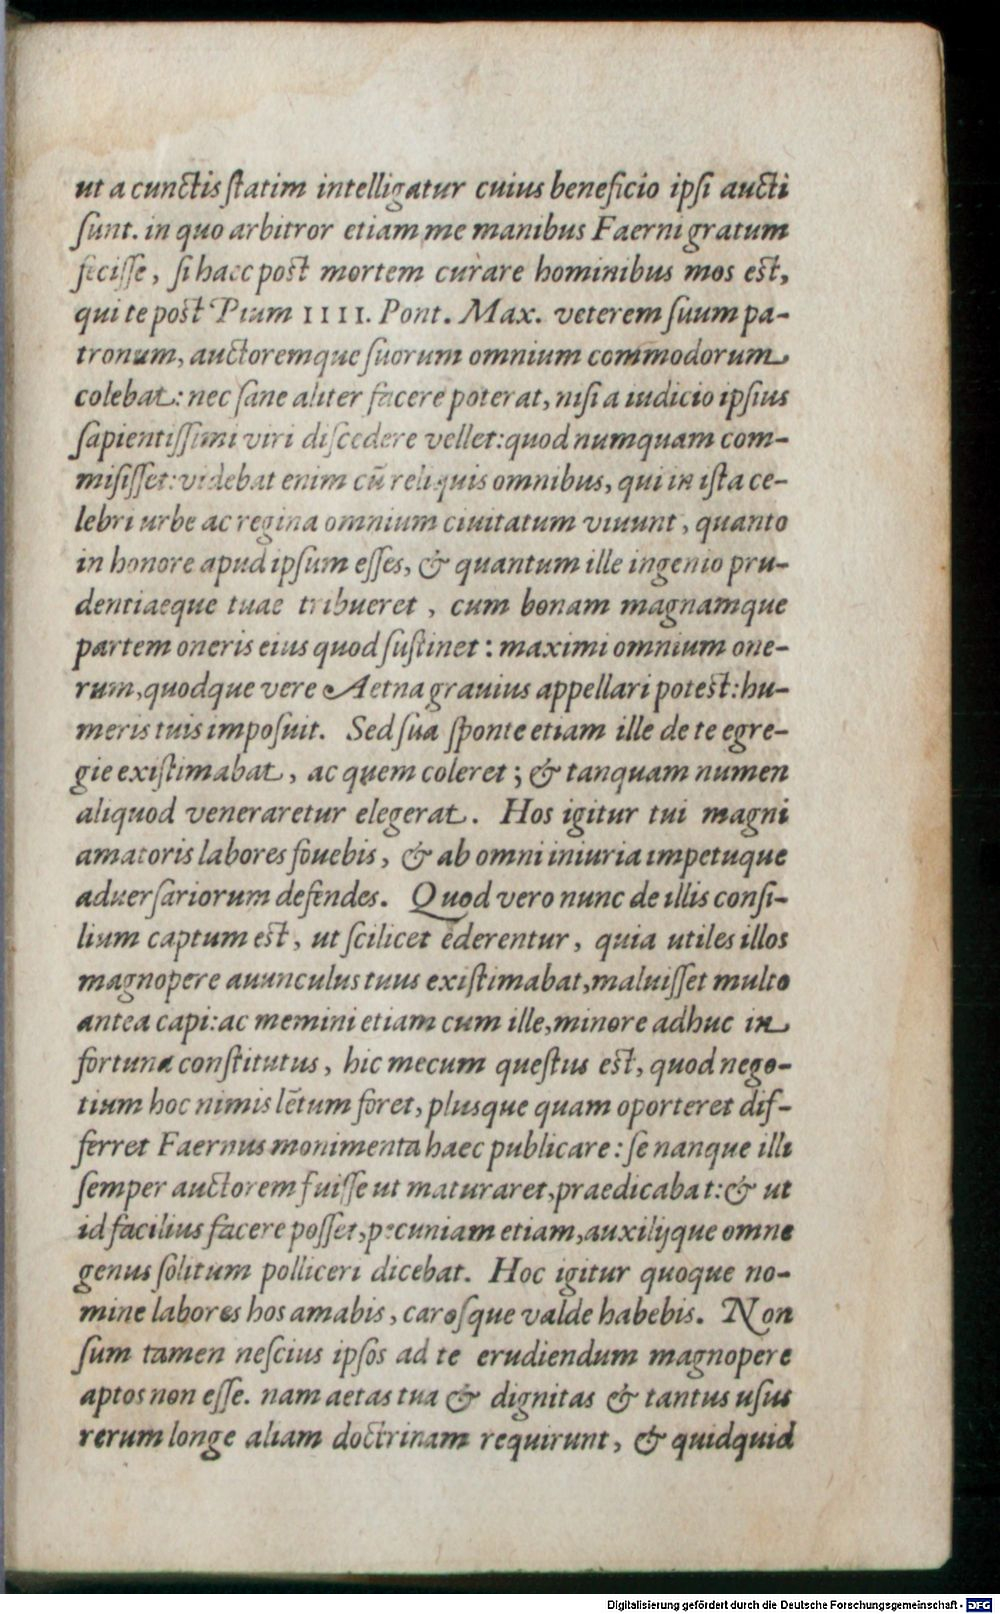 ut a cunctis statim intelligatur cuius beneficio ipsi aucti
sunt. in quo arbitror etiam me manibus Faerni gratum
fecisse, si haec post mortem curare hominibus mos est,
qui te post Pium IIII. Pont. Max. veterem suum pa-
tronum, auctoremque suorum omnium commodorum
colebat: nec sane aliter facere poterat, nisi a iudicio ipsius
sapientissimi viri discedere vellet: quod numquam com-
misisset: videbat enim cũ reliquis omnibus, qui in ista ce-
lebri urbe ac regina omnium ciuitatum viuunt, quanto
in honore apud ipsum esses, & quantum ille ingenio pru-
dentiaeque tuae tribueret, cum bonam magnamque
partem oneris eius quod sustinet: maximi omnium one-
rum, quodque vere Aetna grauius appellari potest: hu-
meris tuis imposuit. Sed sua sponte etiam ille de te egre-
gie existimabat, ac quem coleret; & tanquam numen
aliquod veneraretur elegerat. Hos igitur tui magni
amatoris labores fouebis, & ab omni iniuria impetuque
aduersariorum defendes. Quod vero nunc de illis consi-
lium captum est, ut scilicet ederentur, quia utiles illos
magnopere auunculus tuus existimabat, maluisset multo
antea capi: ac memini etiam cum ille, minore adhuc in
fortuna constitutus, hic mecum questus est, quod nego-
tium hoc nimis lẽtum foret, plusque quam oporteret dif-
ferret Faernus monimenta haec publicare: se nanque illi
semper auctorem fuisse ut maturaret, praedicabat: & ut
id facilius facere posset, pecuniam etiam, auxilijque omne
genus solitum polliceri dicebat. Hoc igitur quoque no-
mine labores hos amabis, carosque valde habebis. Non
sum tamen nescius ipsos ad te erudiendum magnopere
aptos non esse. nam aetas tua & dignitas & tantus usus
rerum longe aliam doctrinam requirunt, & quidquid
Digitalisierung gefördert durch die Deutsche Forschungsgemeinschaft - DFG